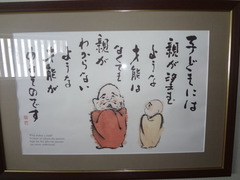 子どもには
親が望む
ような
才能は
なくても
親が
わからない
ような
才能が
あるものです